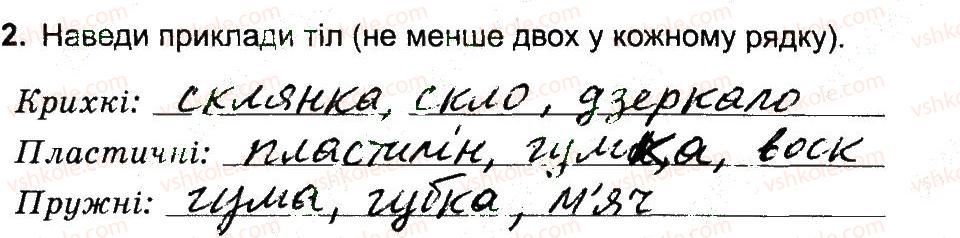 2. Наведи приклади тіл (не менше двох у кожному рядку).
Крихкі: склянка, скло, дзеркало
Пластичні: пластилін, гумка, воск
Пружні: гума, губка, м'яч